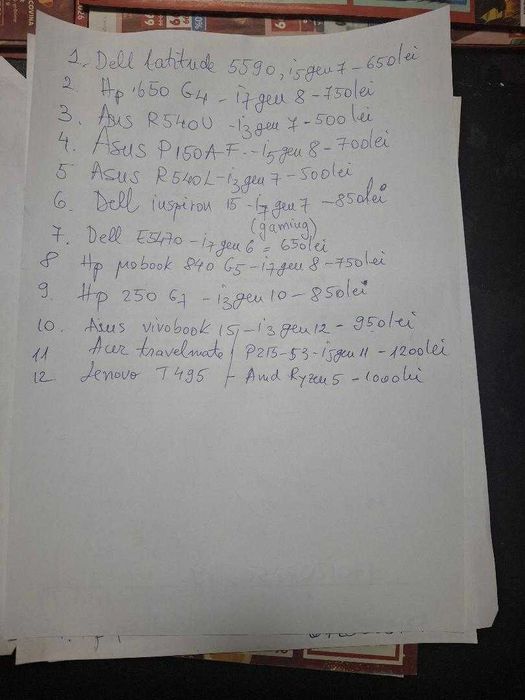 1. Dell latitude 5590, i5 gen 7 - 650lei
2. Hp 650 G4 - i7 gen 8 - 750lei
3. Asus R540U - i3 gen 7 - 500lei
4. Asus P150A-F - i5 gen 8 - 700lei
5 Asus R540L - i3 gen 7 - 500lei
6. Dell inspiron 15 - i7 gen 7 - 850lei
(gaming)
7. Dell E5470 - i7 gen 6 = 650lei
8 Hp probook 840 G5 - i7 gen 8 - 750lei
9. Hp 250 G7 - i3 gen 10 - 850lei
10. Asus vivobook 15 - i3 gen 12 - 950lei
11 Acer travelmate P215-53 - i5 gen 11 - 1200lei
12 Lenovo T495 - Amd Ryzen 5 - 1000lei